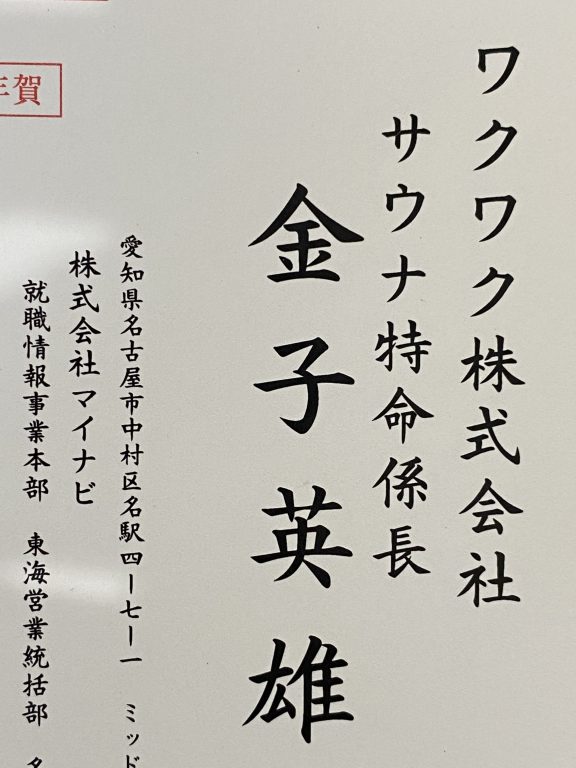 ワクワク株式会社
サウナ特命係長
金子英雄
年賀
愛知県名古屋市中村区名駅四ー七ー一　ミッド
株式会社マイナビ
就職情報事業本部　東海営業統括部　名